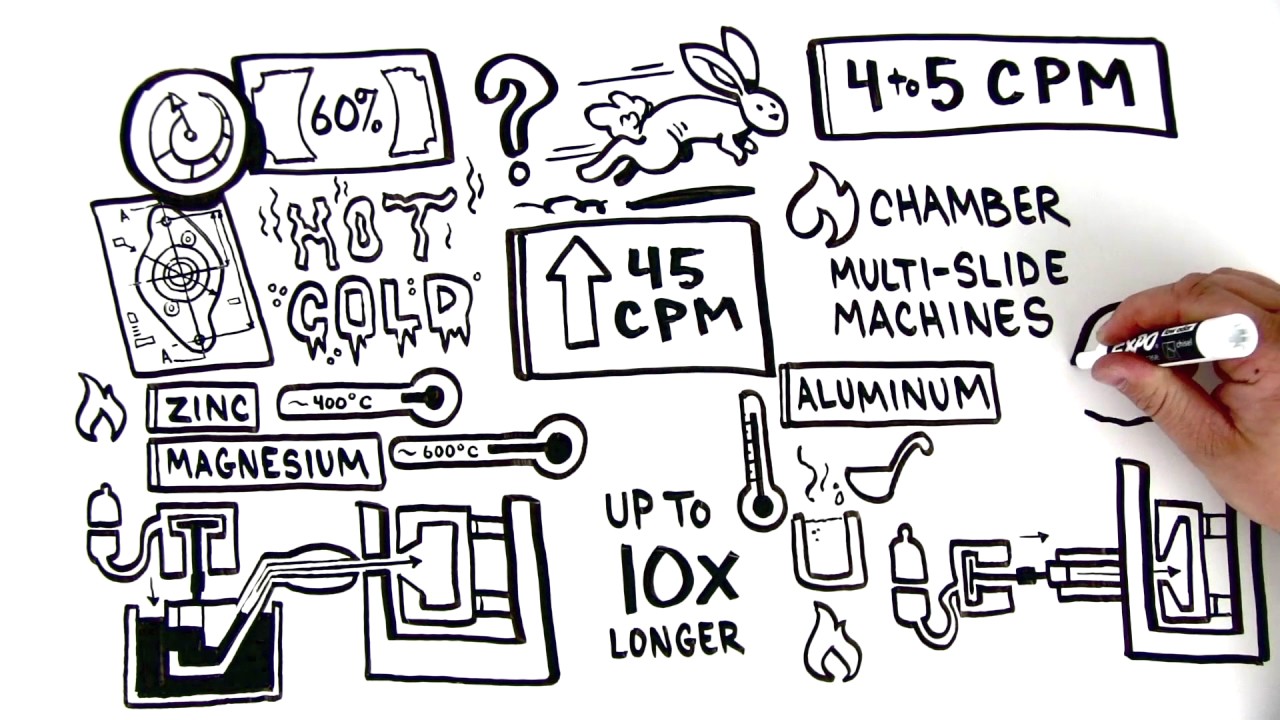 60%
?
4 to 5 CPM
HOT
COLD
A
A'
45
CPM
CHAMBER
MULTI-SLIDE
MACHINES
EXPO
low odor
chisel
ZINC
~400°C
MAGNESIUM
~600°C
ALUMINUM
UP TO
10X
LONGER